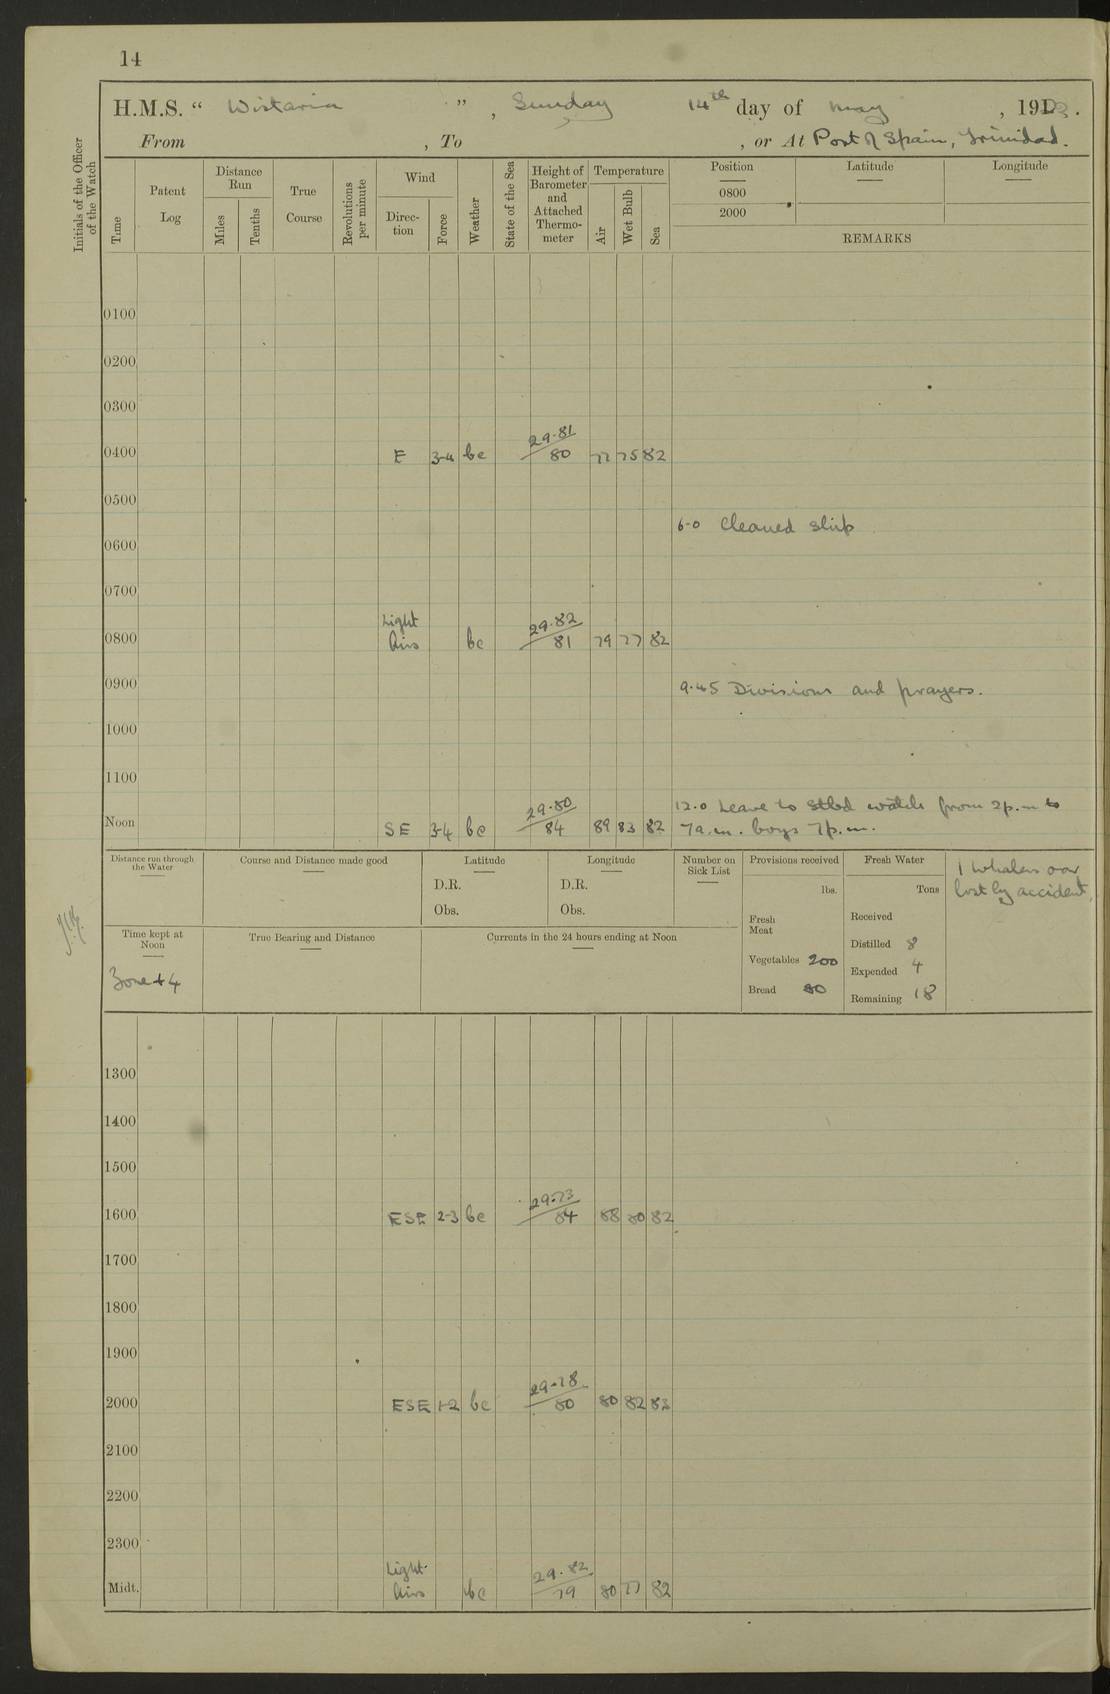 14
H.M.S. “ Wistaria ” , Sunday 14th day of May , 19
From , To , or At Port of Spain, Trinidad.
Initials of the Officer of the Watch
Time
Patent Log
Distance Run
Miles
Tenths
True Course
Revolutions per minute
Wind
Direction
Force
Weather
State of the Sea
Height of Barometer and Attached Thermometer
Temperature
Air
Wet Bulb
Sea
Position Latitude Longitude
0800
2000
REMARKS
0100
0200
0300
0400 E 3-4 bc 29.81 / 80 77 75 82
0500
6-0 Cleaned ship
0600
0700
0800 Light Airs bc 29.82 / 81 79 77 82
0900 9.45 Divisions and prayers.
1000
1100
12.0 Leave to Stbd watch from 2p.m to
Noon SE 3-4 bc 29.80 / 84 89 83 82 7a.m. boys 7p.m.
Distance run through the Water
Course and Distance made good
Latitude
D.R.
Obs.
Longitude
D.R.
Obs.
Number on Sick List
Provisions received
lbs.
Fresh Meat
Vegetables 200
Bread 80
Fresh Water
Tons
Received
Distilled 8
Expended 4
Remaining 18
1 Whalers oar
lost by accident.
Time kept at Noon
Zone + 4
True Bearing and Distance
Currents in the 24 hours ending at Noon
1300
1400
1500
1600 ESE 2-3 bc 29.73 / 84 88 80 82
1700
1800
1900
2000 ESE 1-2 bc 29.78 / 80 80 82 82
2100
2200
2300
Midt. Light Airs bc 29.82 / 79 80 77 82